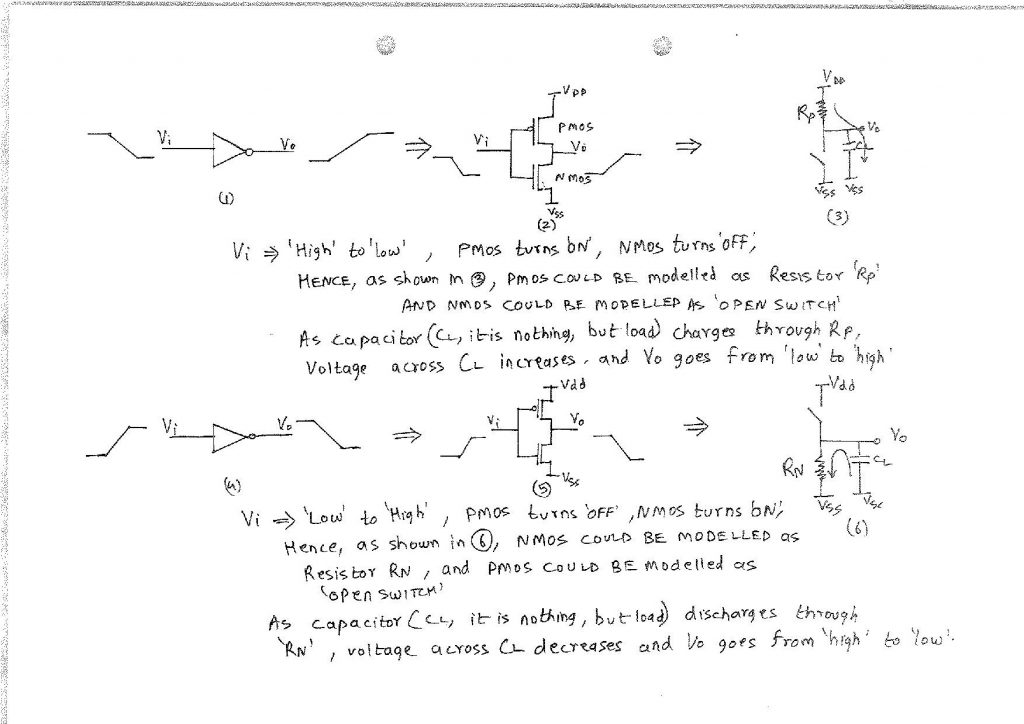 VDD
VDD
Vi
Vo
Vi
PMOS
Vo
NMOS
Vss
Rp
Vo
Vss Vss
(1)
(2)
(3)
Vi ⇒ 'High' to 'low' , PMOS turns 'ON', NMOS turns 'OFF',
HENCE, as shown in ③, PMOS COULD BE modelled as Resistor 'Rp'
AND NMOS COULD BE MODELLED AS 'OPEN SWITCH'
As capacitor (CL, it is nothing, but load) charges through Rp,
Voltage across CL increases, and Vo goes from 'low' to 'high'
Vdd
Vdd
Vi
Vo
Vi
Vo
Vss
Vo
RN
CL
Vss
Vss
(4)
(5)
(6)
Vi ⇒ 'Low' to 'High' , PMOS turns 'OFF' , NMOS turns 'ON',
Hence, as shown in ⑥, NMOS COULD BE MODELLED as
Resistor RN , and PMOS COULD BE modelled as
'open SWITCH'
As capacitor (CL, it is nothing, but load) discharges through
'RN' , voltage across CL decreases and Vo goes from 'high' to 'low'.